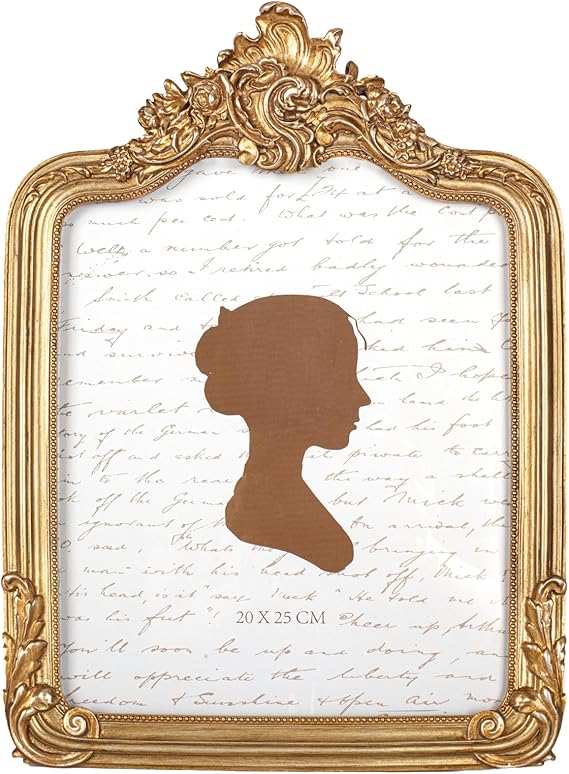 gave one
was sold for £74 at a
so much per cost. What was the cost p
Well a number got told for the
answer, so I retired badly wounde
Smith called School last
Friday and had seen
and survive asked him
remember n I hope
the varlet land the
tory of the German had his foot
hat off and asked private to car
in to the rea the way a shell
ook off the German but Quick wh
ignorant of th On arrival, th
O. said, "Whats bringing in
man" with his head shot off, Quick
His head is it" say Quick" He told me it
was his feet"! 20 X 25 CM Cheer up, Arthu
You'll soon be up and doing, an
will appreciate the liberty and
freedom & Sunshine & open air, mor